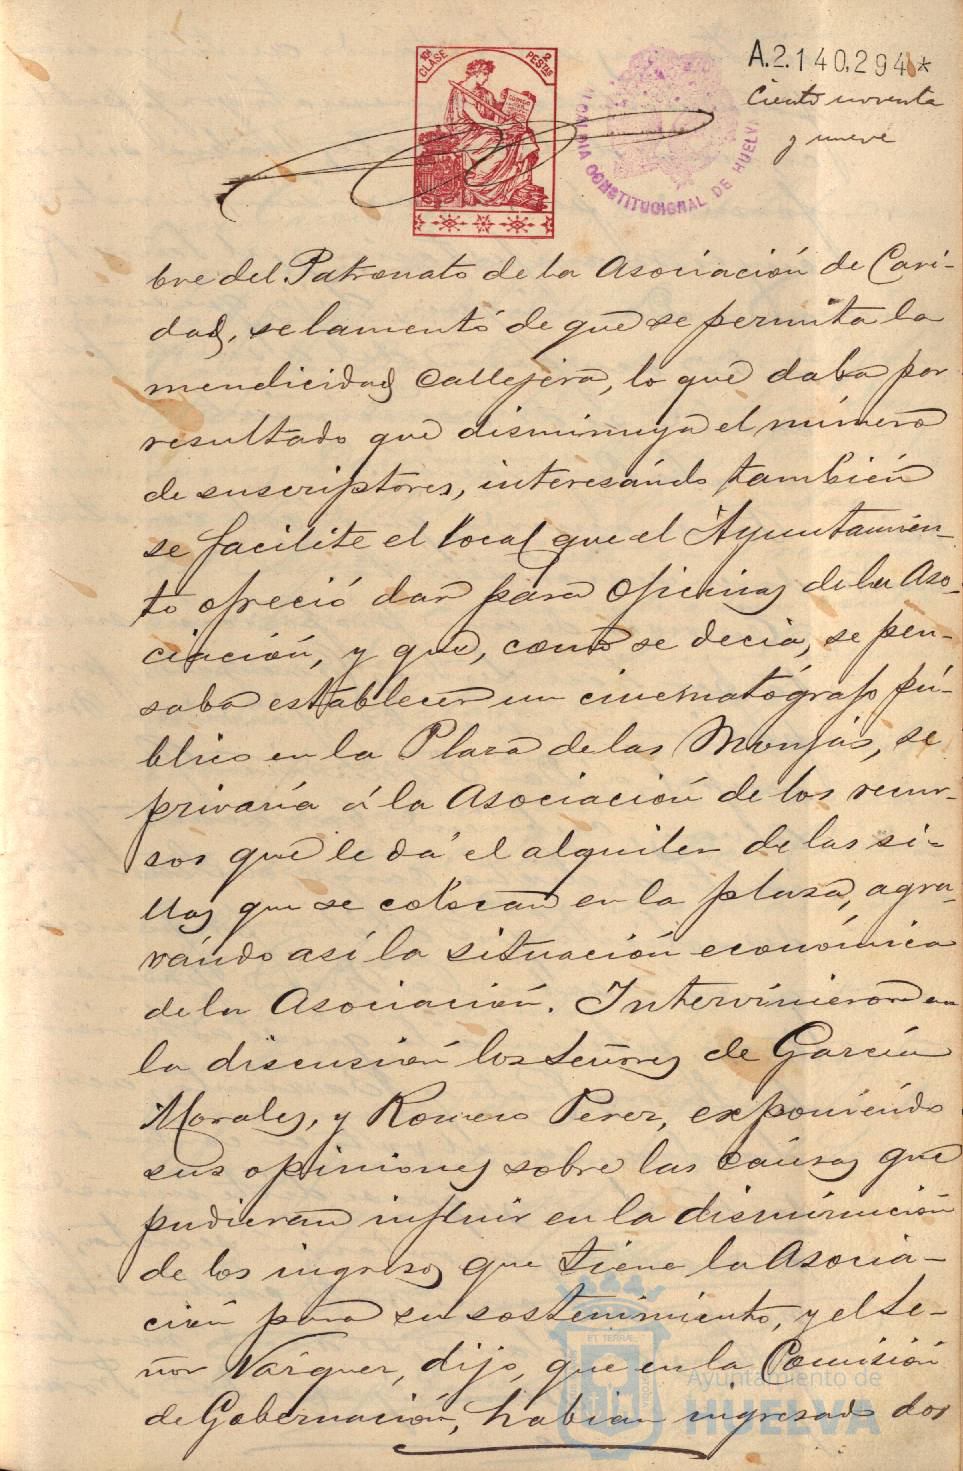 10ª CLASE 2 PESTAS
ALCALDIA CONSTITUCIONAL DE HUELVA
A.2.140.294 *
Ciento noventa
y nueve
bre del Patronato de la Asociación de Cari-
dad, se lamentó de que se permita la
mendicidad callejera, lo que daba por
resultado que disminuya el número
de suscriptores, interesándo también
se facilite el local que el Ayuntamien-
to ofreció dar para oficinas de la Aso-
ciación, y que, como se decia, se pen-
saba establecer un cinematógrafo pú-
blico en la Plaza de las Monjas, se
privaría á la Asociación de los recur-
sos que le dá el alquiler de las si-
llas que se colocan en la plaza, agra-
vándo así la situación económica
de la Asociación. Intervinieron en
la discusión los Señores de García
Morales, y Romero Perez, exponiéndo
sus opiniones sobre las cáusas que
pudieran influir en la disminución
de los ingresos que tiene la Asocia-
ción para su sostenimiento, y el Se-
ñor Vázquez, dijo, que en la Comisión
de Gobernación, habían ingresado dos
Ayuntamiento de
HUELVA